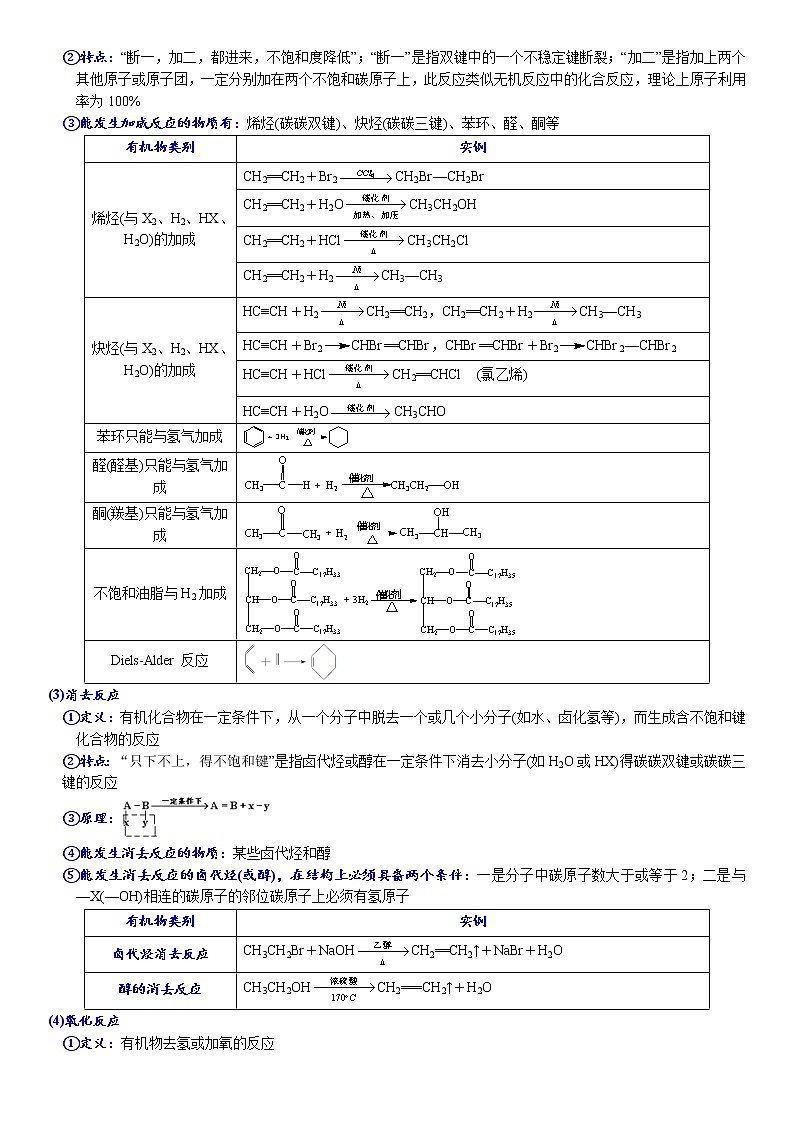 ②特点：“断一，加二，都进来，不饱和度降低”；“断一”是指双键中的一个不稳定键断裂；“加二”是指加上两个
其他原子或原子团，一定分别加在两个不饱和碳原子上，此反应类似无机反应中的化合反应，理论上原子利用
率为100%
③能发生加成反应的物质有：烯烃(碳碳双键)、炔烃(碳碳三键)、苯环、醛、酮等
有机物类别 实例
烯烃(与X2、H2、HX、
H2O)的加成
CH2═CH2＋Br2 CCl4 → CH2Br—CH2Br
CH2═CH2＋H2O 催化剂 加热、加压 → CH3CH2OH
CH2═CH2＋HCl 催化剂 △ → CH3CH2Cl
CH2═CH2＋H2 Ni △ → CH3—CH3
炔烃(与X2、H2、HX、
H2O)的加成
HC≡CH＋H2 Ni △ → CH2═CH2，CH2═CH2＋H2 Ni △ → CH3—CH3
HC≡CH＋Br2 → CHBr═CHBr，CHBr═CHBr＋Br2 → CHBr2—CHBr2
HC≡CH＋HCl 催化剂 △ → CH2═CHCl (氯乙烯)
HC≡CH＋H2O 催化剂 → CH3CHO
苯环只能与氢气加成
+ 3H2 催化剂 △ →
醛(醛基)只能与氢气加
成
O
CH3—C—H + H2 催化剂 △ → CH3CH2—OH
酮(羰基)只能与氢气加
成
O OH
CH3—C—CH3 + H2 催化剂 △ → CH3—CH—CH3
不饱和油脂与H2加成
O O
CH2—O—C—C17H33 CH2—O—C—C17H35
O O
CH—O—C—C17H33 + 3H2 催化剂 △ → CH—O—C—C17H35
O O
CH2—O—C—C17H33 CH2—O—C—C17H35
Diels-Alder 反应
+ ‖ →
(3)消去反应
①定义：有机化合物在一定条件下，从一个分子中脱去一个或几个小分子(如水、卤化氢等)，而生成含不饱和键
化合物的反应
②特点：“只下不上，得不饱和键”是指卤代烃或醇在一定条件下消去小分子(如H2O或HX)得碳碳双键或碳碳三
键的反应
③原理：A－B 一定条件下 → A＝B＋x－y
x y
④能发生消去反应的物质：某些卤代烃和醇
⑤能发生消去反应的卤代烃(或醇)，在结构上必须具备两个条件：一是分子中碳原子数大于或等于2；二是与
—X(—OH)相连的碳原子的邻位碳原子上必须有氢原子
有机物类别 实例
卤代烃消去反应 CH3CH2Br＋NaOH 乙醇 △ → CH2═CH2↑＋NaBr＋H2O
醇的消去反应 CH3CH2OH 浓硫酸 170℃ → CH2═CH2↑＋H2O
(4)氧化反应
①定义：有机物去氢或加氧的反应